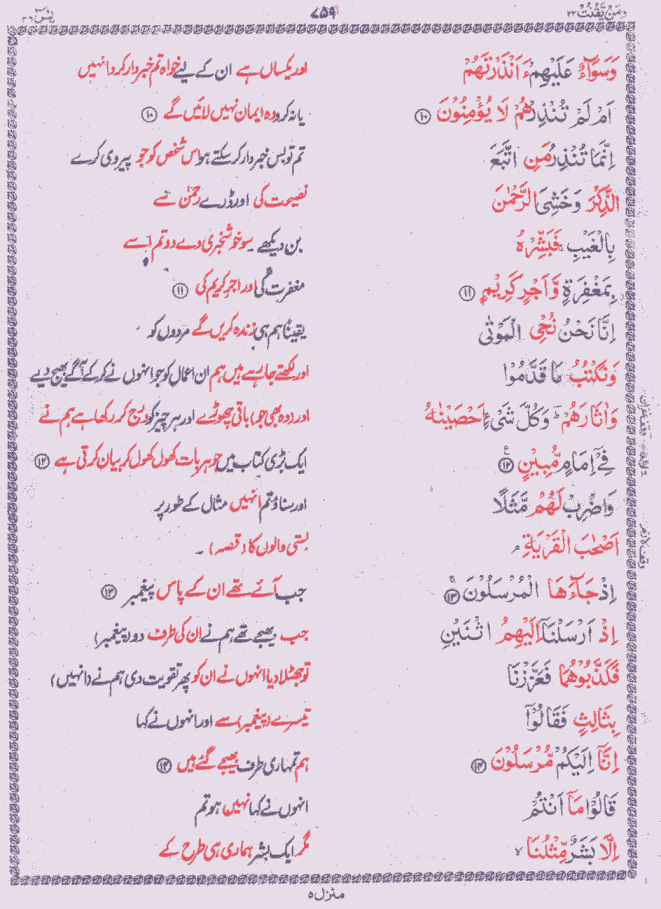 ومن یقنت ۲۲ ۷۵۹ یٰسٓ ۳۶
وَسَوَآءٌ عَلَيْهِمْ ءَاَنْذَرْتَهُمْ اور یکساں ہے ان کے لیے خواہ تم خبردار کرو انہیں
اَمْ لَمْ تُنْذِرْهُمْ لَا يُؤْمِنُوْنَ ⑩ یا نہ کرو وہ ایمان نہیں لائیں گے ⑩
اِنَّمَا تُنْذِرُ مَنِ اتَّبَعَ تم تو بس خبردار کر سکتے ہو اس شخص کو جو پیروی کرے
الذِّكْرَ وَخَشِىَ الرَّحْمٰنَ نصیحت کی اور ڈرے رحمٰن سے
بِالْغَيْبِ فَبَشِّرْهُ بن دیکھے۔ سو خوشخبری دے دو تم اسے
بِمَغْفِرَةٍ وَّاَجْرٍ كَرِيْمٍ ⑪ مغفرت کی اور اجرِ کریم کی ⑪
اِنَّا نَحْنُ نُحْىِ الْمَوْتٰى یقیناً ہم ہی زندہ کریں گے مردوں کو
وَنَكْتُبُ مَا قَدَّمُوْا اور لکھتے جا رہے ہیں ہم ان اعمال کو جو انہوں نے کر کے آگے بھیج دیے
وَاٰثَارَهُمْ ؕ وَكُلَّ شَىْءٍ اَحْصَيْنٰهُ اور (وہ بھی جو) باقی چھوڑے اور ہر چیز کو درج کر رکھا ہے ہم نے
فِىْٓ اِمَامٍ مُّبِيْنٍ ⑫ ایک بڑی کتاب میں جو ہر بات کھول کھول کر بیان کرتی ہے ⑫
وَاضْرِبْ لَهُمْ مَّثَلًا اور سناؤ تم انہیں مثال کے طور پر
اَصْحٰبَ الْقَرْيَةِ ۘ بستی والوں کا (قصہ) ۔
اِذْ جَآءَهَا الْمُرْسَلُوْنَ ⑬ جب آئے تھے ان کے پاس پیغمبر ⑬
اِذْ اَرْسَلْنَآ اِلَيْهِمُ اثْنَيْنِ جب بھیجے تھے ہم نے ان کی طرف دو (پیغمبر)
فَكَذَّبُوْهُمَا فَعَزَّزْنَا تو جھٹلا دیا انہوں نے ان کو پھر تقویت دی ہم نے (انہیں)
بِثَالِثٍ فَقَالُوْٓا تیسرے (پیغمبر) سے اور انہوں نے کہا
اِنَّآ اِلَيْكُمْ مُّرْسَلُوْنَ ⑭ ہم تمہاری طرف بھیجے گئے ہیں ⑭
قَالُوْا مَآ اَنْتُمْ انہوں نے کہا نہیں ہو تم
اِلَّا بَشَرٌ مِّثْلُنَا ۙ مگر ایک بشر ہماری ہی طرح کے
منزل ۵